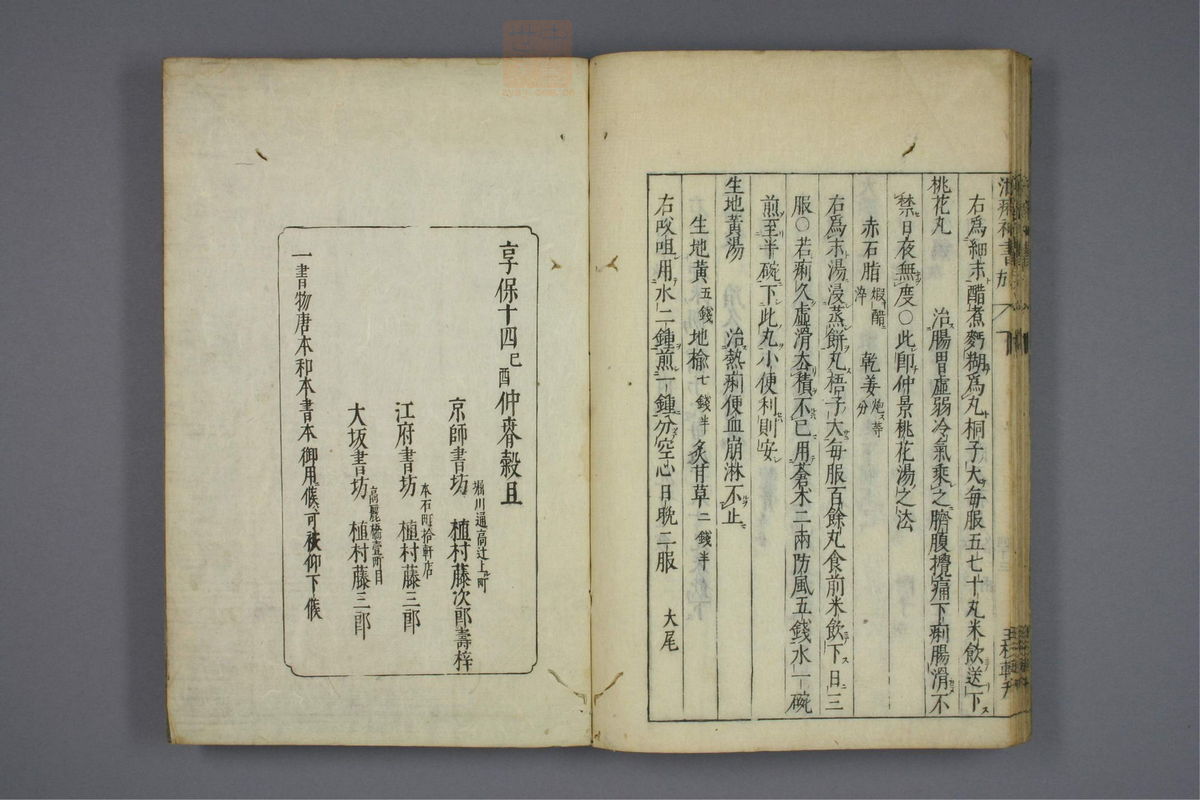 右爲細末醋煮麪糊爲丸桐子大每服五七十丸米飲送下
桃花丸　治腸胃虛弱冷氣乘之臍腹攪痛下痢腸滑不
禁日夜無度〇此卽仲景桃花湯之法
赤石脂煆醋淬　乾姜炮等分
右爲末湯浸蒸餅丸梧子大每服百餘丸食前米飲下日三
服〇若痢久虛滑去積不已用蒼朮二兩防風五錢水一碗
煎至半碗下此丸小便利則安
生地黃湯　治熱痢便血崩淋不止
生地黃五錢　地榆七錢半　炙甘草二錢半
右㕮咀用水二鍾煎一鍾分空心日晚二服　大尾
享保十四己酉仲春穀旦
京師書坊　堀川通高辻上ル町　植村藤次郎壽梓
江府書坊　本石町拾軒店　植村藤三郎
大坂書坊　高麗橋壹町目　植村藤三郎
一書物唐本和本書本御用候ハヽ可被仰下候